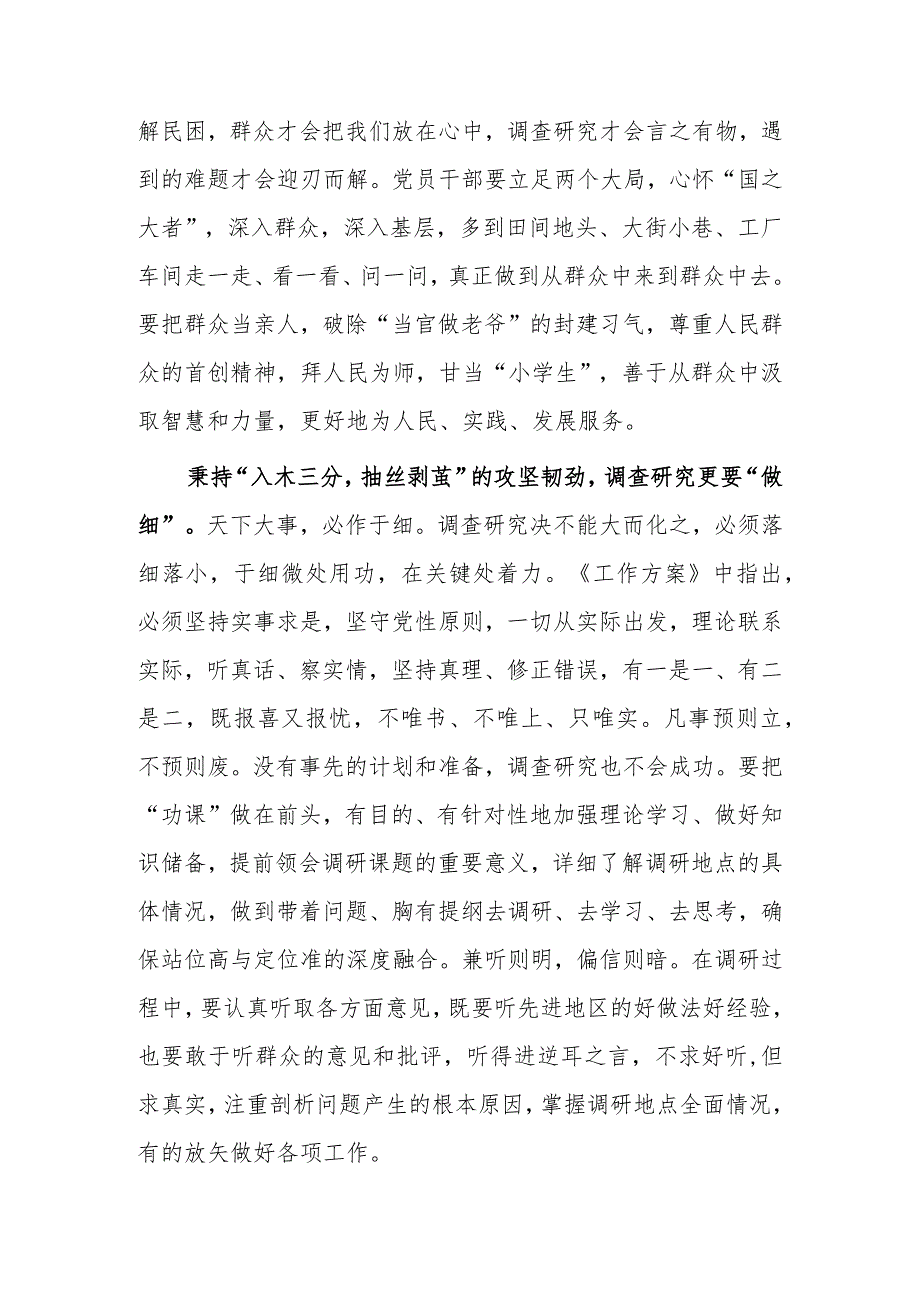 解民困，群众才会把我们放在心中，调查研究才会言之有物，遇
到的难题才会迎刃而解。党员干部要立足两个大局，心怀“国之
大者”，深入群众，深入基层，多到田间地头、大街小巷、工厂
车间走一走、看一看、问一问，真正做到从群众中来到群众中去。
要把群众当亲人，破除“当官做老爷”的封建习气，尊重人民群
众的首创精神，拜人民为师，甘当“小学生”，善于从群众中汲
取智慧和力量，更好地为人民、实践、发展服务。
秉持“入木三分，抽丝剥茧”的攻坚韧劲，调查研究更要“做
细”。天下大事，必作于细。调查研究决不能大而化之，必须落
细落小，于细微处用功，在关键处着力。《工作方案》中指出，
必须坚持实事求是，坚守党性原则，一切从实际出发，理论联系
实际，听真话、察实情，坚持真理、修正错误，有一是一、有二
是二，既报喜又报忧，不唯书、不唯上、只唯实。凡事预则立，
不预则废。没有事先的计划和准备，调查研究也不会成功。要把
“功课”做在前头，有目的、有针对性地加强理论学习、做好知
识储备，提前领会调研课题的重要意义，详细了解调研地点的具
体情况，做到带着问题、胸有提纲去调研、去学习、去思考，确
保站位高与定位准的深度融合。兼听则明，偏信则暗。在调研过
程中，要认真听取各方面意见，既要听先进地区的好做法好经验，
也要敢于听群众的意见和批评，听得进逆耳之言，不求好听,但
求真实，注重剖析问题产生的根本原因，掌握调研地点全面情况，
有的放矢做好各项工作。